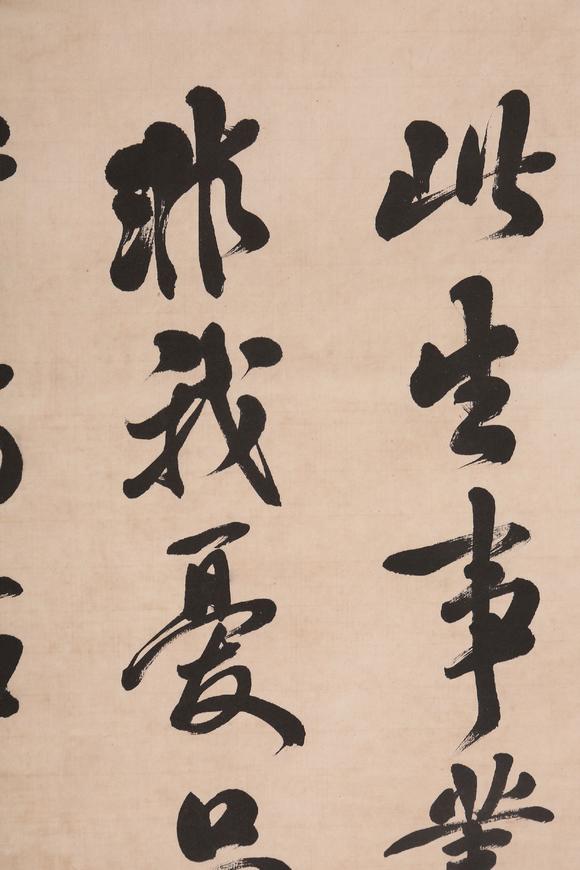 此生事業
非我憂